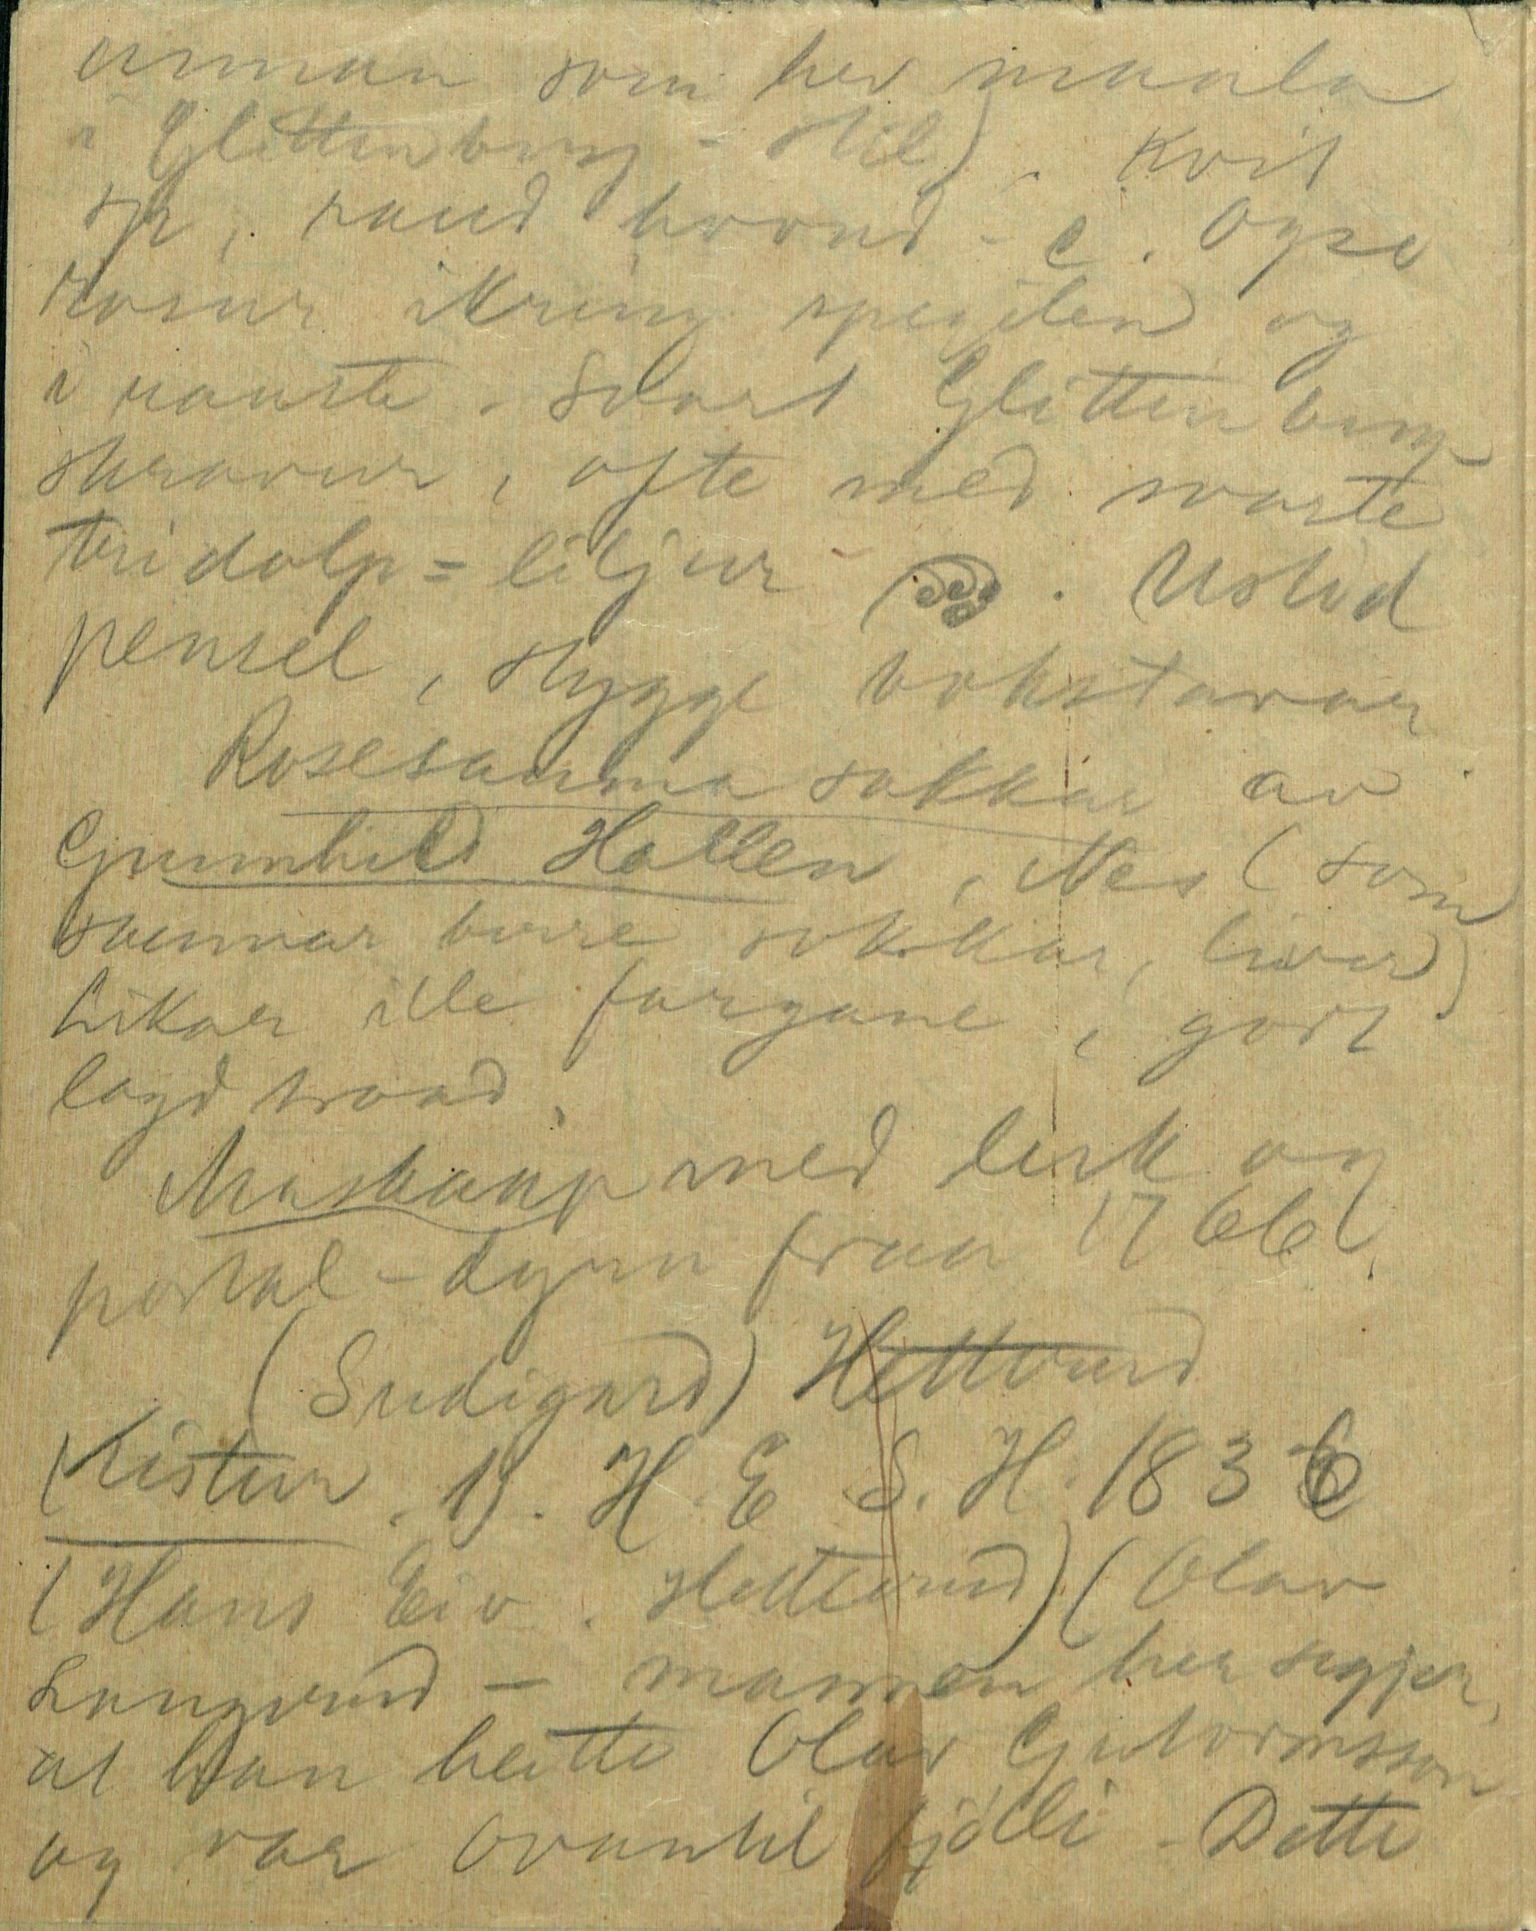 annan som hev maala
i Glittenberg-stil). Kvit
sp, raud botnd - c. Ogso
rosur ikring spegilen og
i rauste. Svart Glittenberg
skravur, ofte med svarte
tridolp=liljur. Ustød
pensel, stygge bokstavar
Rosesauma sokkar av
Gunnhild Hallen, Nes (som
saumar berre sokkar, livar)
Likar ille fargane, godt
lagd traad.
Matskaap med lesk og
portal-dyrn fraa 1766.
(Sudigard) Hetterud
Kistur. 1). H. E. S. H. 1836
(Hans Eiv. Hetterud) (Olav
Langerud - mannen her segjer,
at han heitte Olav Gutormsson
og var ovantil fjølli - Dette